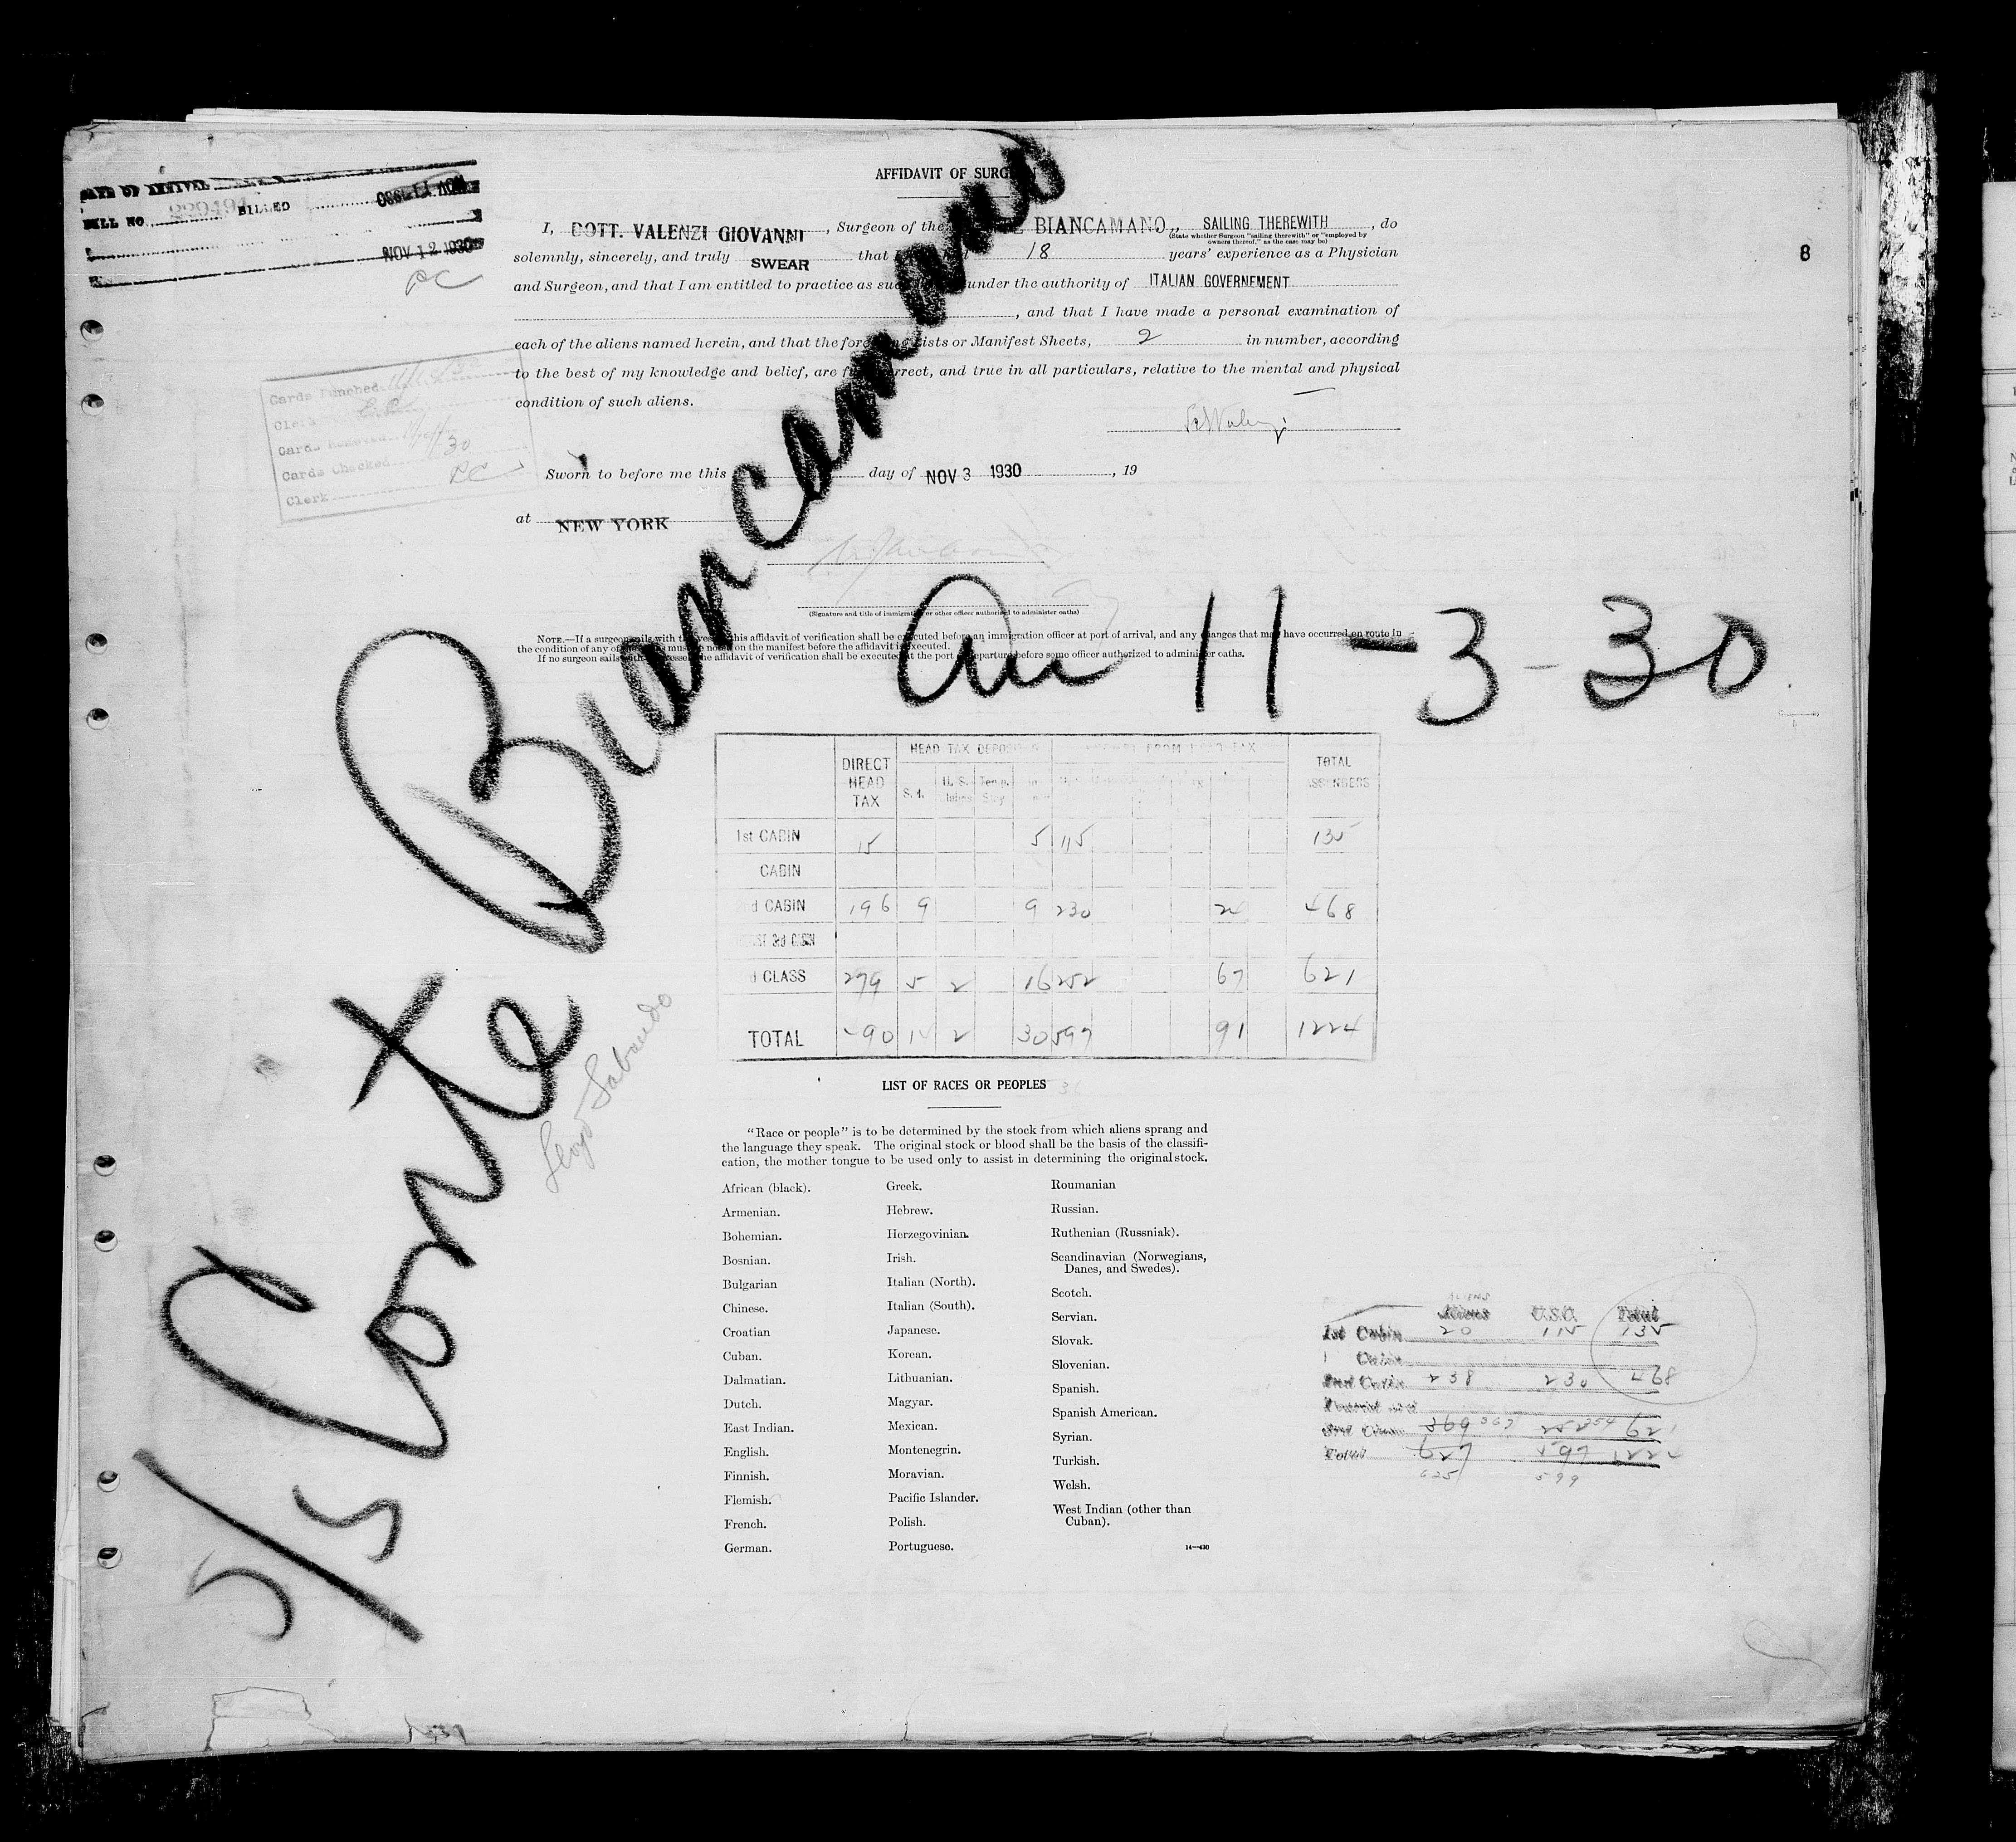 DATE OF ARRIVAL NOV 11 1930
BILL NO. 220494 BILLED
NOV 12 1930
PC
8
AFFIDAVIT OF SURGEON
I, DOTT. VALENZI GIOVANNI, Surgeon of the BIANCAMANO, SAILING THEREWITH, do
(State whether Surgeon "sailing therewith" or "employed by
owners thereof," as the case may be)
solemnly, sincerely, and truly SWEAR that 18 years' experience as a Physician
and Surgeon, and that I am entitled to practice as such under the authority of ITALIAN GOVERNEMENT
, and that I have made a personal examination of
each of the aliens named herein, and that the foregoing Lists or Manifest Sheets, 2 in number, according
to the best of my knowledge and belief, are full, correct, and true in all particulars, relative to the mental and physical
condition of such aliens.
Cards Punched
Clerk
Cards Removed
Cards Checked
Clerk PC
Sworn to before me this day of NOV 3 1930, 19
at NEW YORK
(Signature and title of immigration or other officer authorized to administer oaths)
NOTE.—If a surgeon sails with the vessel this affidavit of verification shall be executed before an immigration officer at port of arrival, and any changes that may have occurred en route in
the condition of any of must be noted on the manifest before the affidavit is executed.
If no surgeon sails with the vessel the affidavit of verification shall be executed at the port of departure before some officer authorized to administer oaths.
S/S Conte Biancamano
Arr 11-3-30
Lloyd Sabaudo
DIRECT HEAD TAX HEAD TAX DEPOSITED EXEMPT FROM HEAD TAX TOTAL PASSENGERS
S.I. U.S. Temp. Stay
1st CABIN 15 5 115 135
CABIN
2nd CABIN 196 9 9 230 24 468
3rd CABIN
3rd CLASS 279 5 2 16 252 67 621
TOTAL 490 14 2 30 597 91 1224
LIST OF RACES OR PEOPLES
"Race or people" is to be determined by the stock from which aliens sprang and
the language they speak. The original stock or blood shall be the basis of the classifi-
cation, the mother tongue to be used only to assist in determining the original stock.
African (black).
Armenian.
Bohemian.
Bosnian.
Bulgarian
Chinese.
Croatian
Cuban.
Dalmatian.
Dutch.
East Indian.
English.
Finnish.
Flemish.
French.
German.
Greek.
Hebrew.
Herzegovinian.
Irish.
Italian (North).
Italian (South).
Japanese.
Korean.
Lithuanian.
Magyar.
Mexican.
Montenegrin.
Moravian.
Pacific Islander.
Polish.
Portuguese.
Roumanian
Russian.
Ruthenian (Russniak).
Scandinavian (Norwegians,
Danes, and Swedes).
Scotch.
Servian.
Slovak.
Slovenian.
Spanish.
Spanish American.
Syrian.
Turkish.
Welsh.
West Indian (other than
Cuban).
14—430
Aliens U.S.C. Total
1st Cabin 20 115 135
Cabin
2nd Cabin 238 230 468
3rd Class 369 367 252 254 621
Total 627 597 1224
625 599